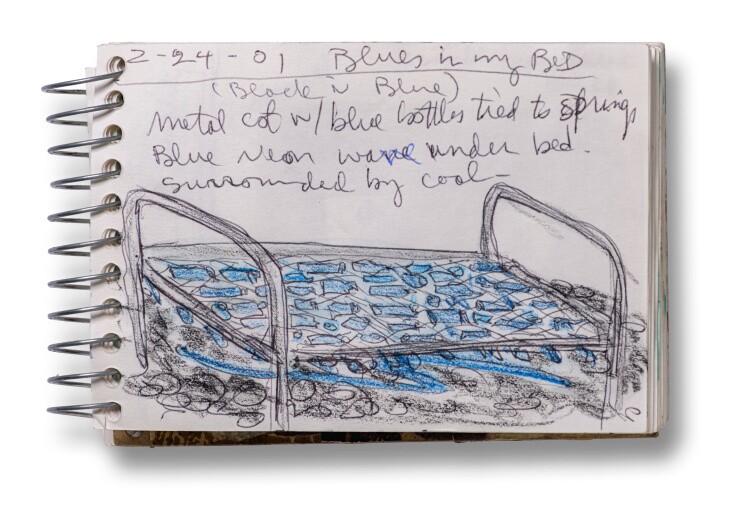 2-24-01 Blues in my Bed
(Black 'n Blue)
Metal cot w/ blue bottles tied to springs
Blue Neon wave under bed.
Surrounded by coal-